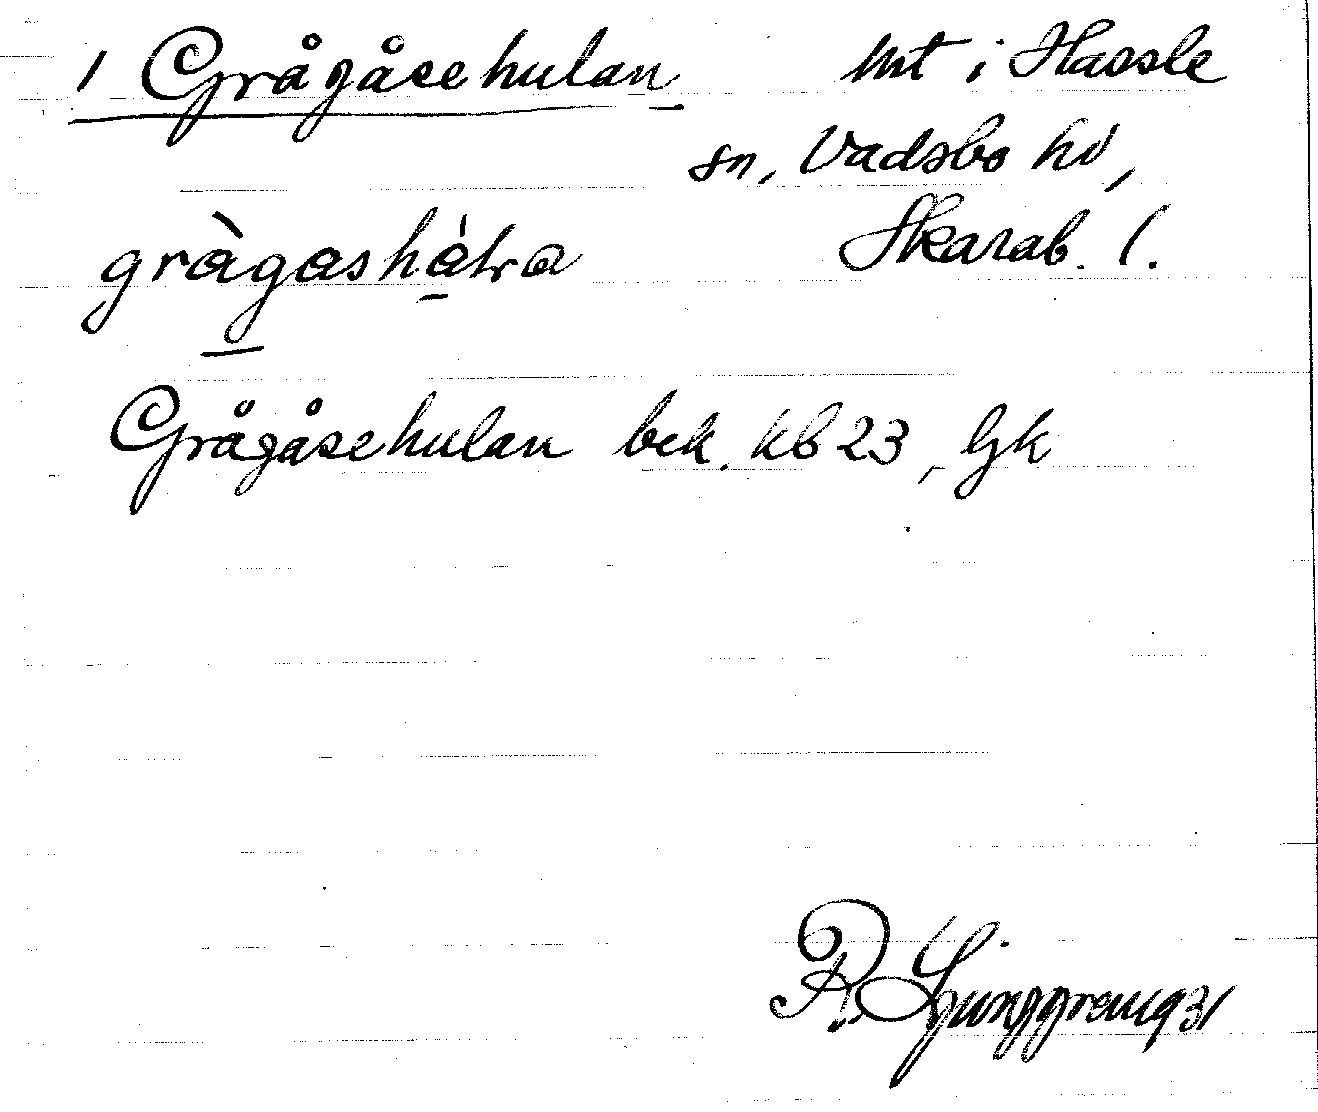 1 Grågåsehulan unt i Hassle
sn, Vadsbo hd,
Skarab. l.
gràgashàlra
Grågåsehulan bek. kb 23, Ljk
R. Ljunggren 1931